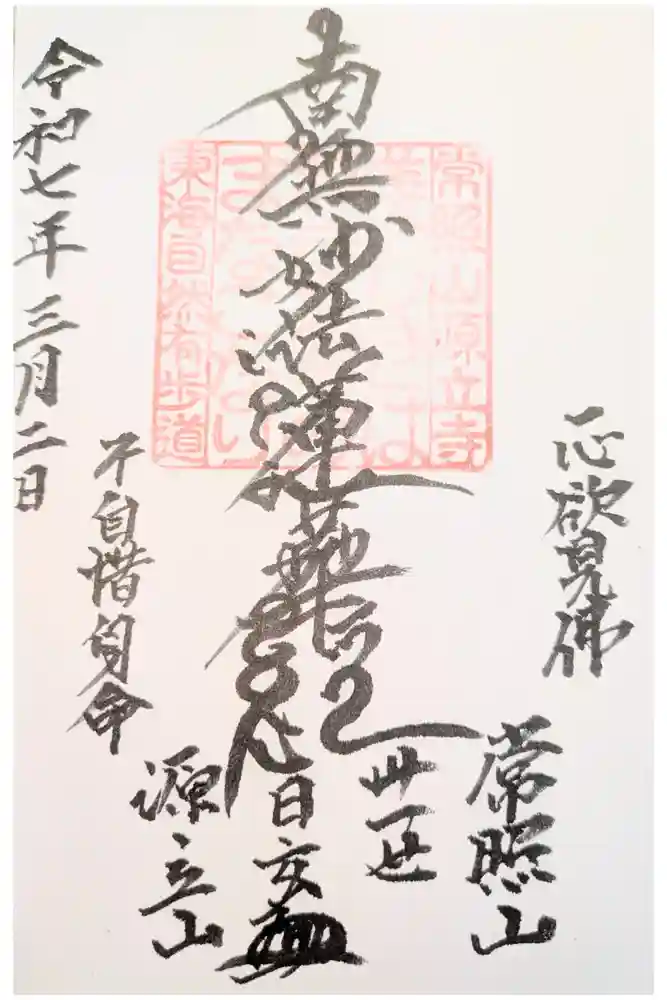 一心欲見佛
常照山
南無妙法蓮華経
卅一世
日
不自惜身命
源立山
令和七年三月二日
常照山源立寺
東海自然歩道